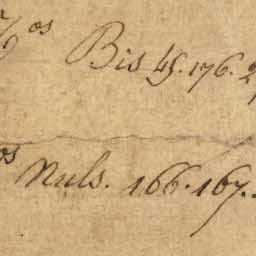 os Bis 45. 176. 2
os Nuls. 166. 167.